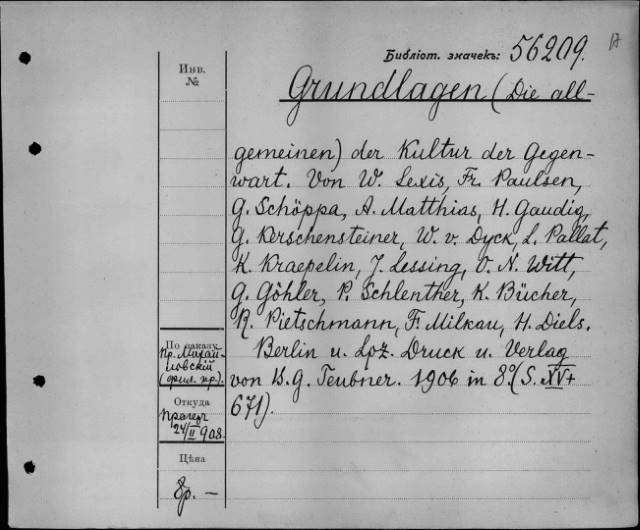 Библіот. значекъ: 56209.
17
Инв.
№
Grundlagen (Die all-
gemeinen) der Kultur der Gegen-
wart. Von W. Lexis, Fr. Paulsen,
G. Schöppa, A. Matthias, H. Gaudig,
G. Kerschensteiner, W. v. Dyck, L. Pallat,
K. Kraepelin, J. Lessing, O. N. Witt,
G. Göhler, P. Schlenther, K. Bücher,
R. Pietschmann, F. Milkau, H. Diels.
Berlin u. Lpz. Druck u. Verlag
von B. G. Teubner. 1906 in 8º. (S. XV+
671).
По заказу
пр. Михай-
ловскій
Откуда
24/II 908.
Цѣна
8р. —